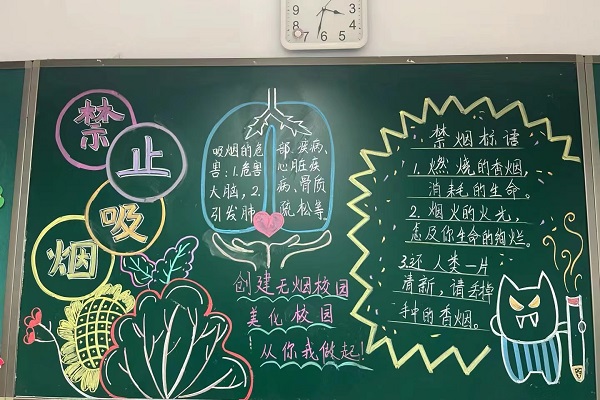 禁
止
吸
烟
吸烟的危
害:1.危害
大脑,2.
引发肺
部疾病、
心脏疾
病、骨质
疏松等。
创建无烟校园
美化校园
从你我做起!
禁烟标语
1.燃烧的香烟,
消耗的生命。
2.烟火的火光,
虑及你生命的绚烂。
3.还人类一片
清新,请丢掉
手中的香烟。